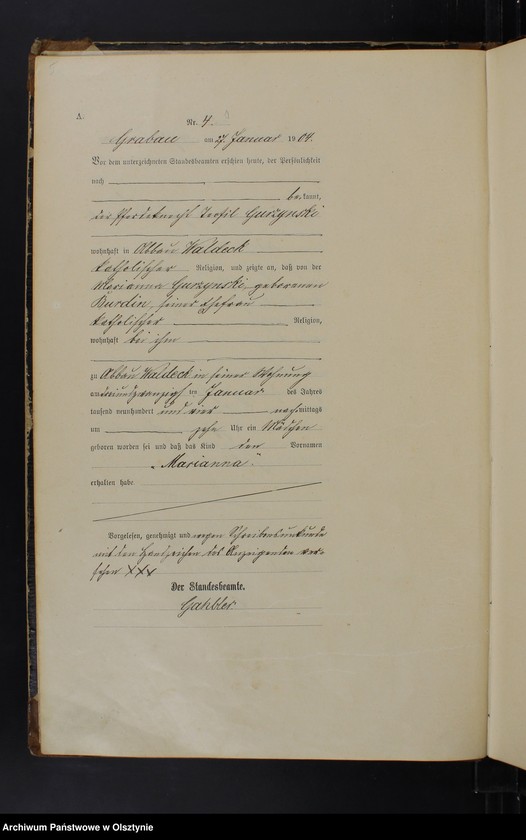 A.
Nr. 4.
Grabau am 27. Januar 1904.
Vor dem unterzeichneten Standesbeamten erschien heute, der Persönlichkeit
nach
bekannt,
der Pferdeknecht Teofil Gurzynski
wohnhaft in Abbau Waldeck
katholischer Religion, und zeigte an, daß von der
Marianna Gurzynski, geborenen
Burdin, seiner Ehefrau
katholischer Religion,
wohnhaft bei ihm
zu Abbau Waldeck in seiner Wohnung
am ten Januar des Jahres
tausend neunhundert und vier nachmittags
um zehn Uhr ein Mädchen
geboren worden sei und daß das Kind den Vornamen
„Marianna“
erhalten habe.
Vorgelesen, genehmigt und wegen Schreibensunkunde
mit den Handzeichen des Anzeigenden ver-
sehen XXX
Der Standesbeamte.
Archiwum Państwowe w Olsztynie